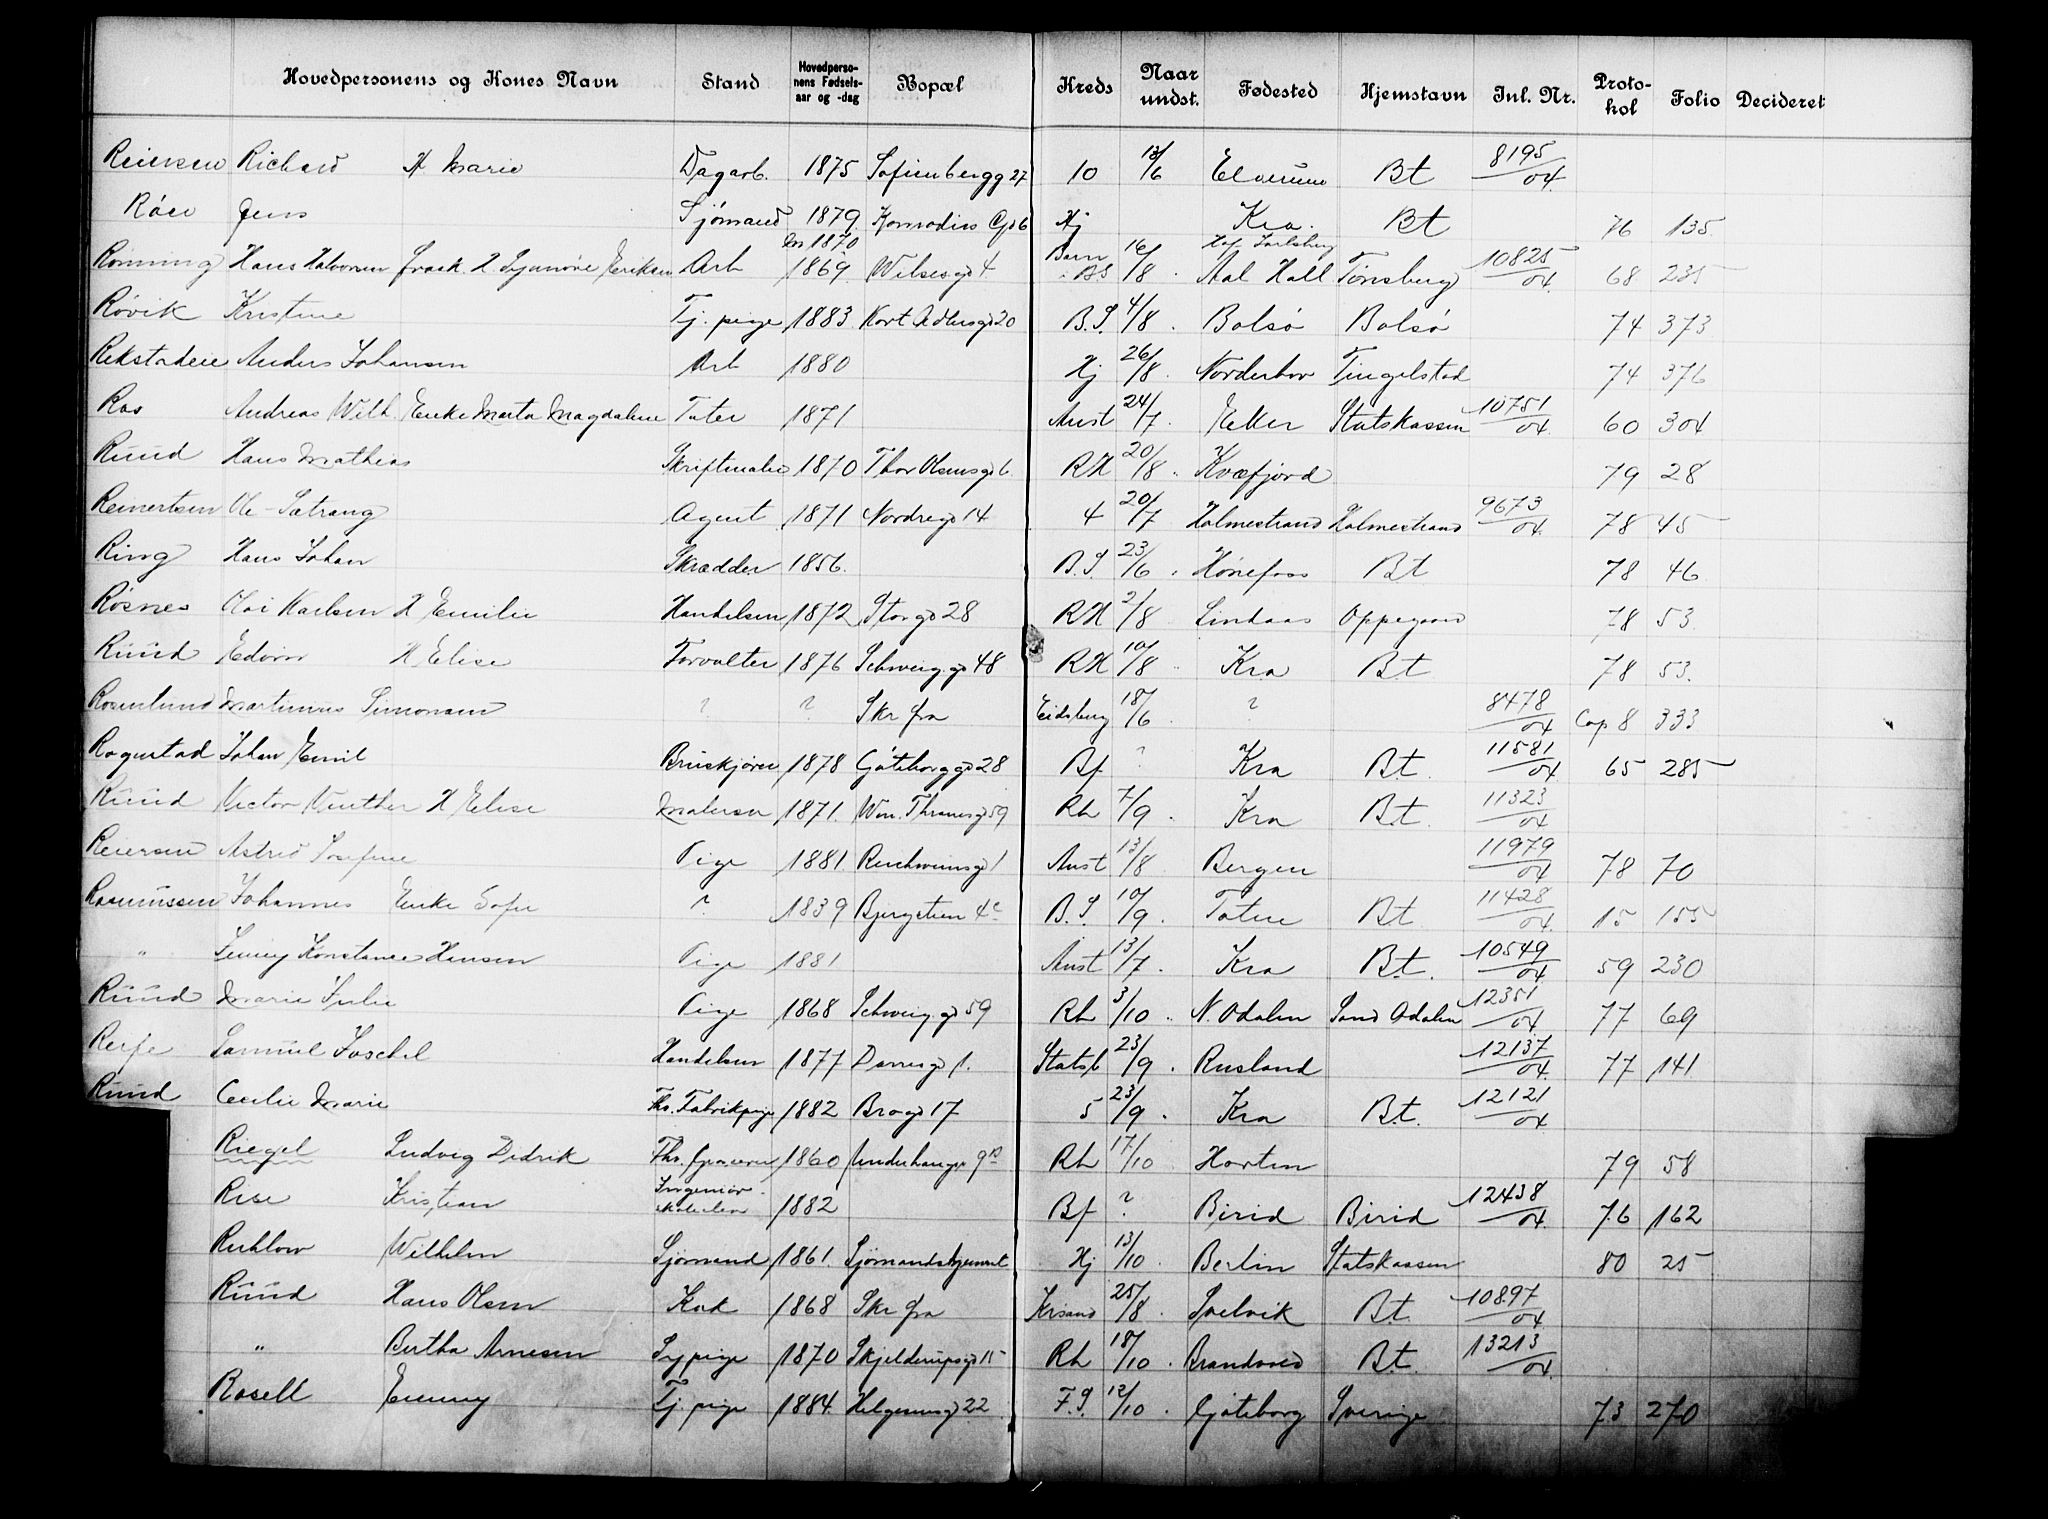 Hovedpersonens og Kones Navn Stand Hovedperso-nens Fødsels-aar og -dag Bopæl Kreds Naar undst. Fødested Hjemstavn Inl. Nr. Proto-kol Folio Decideret
Reiersen Richard H Marie Dagarb. 1875 Sofienbergg 27 10 13/6 Elverum Bt 8195/04
Røer Jens Sjømand 1879. Konradis Gd 6 Hj Kra. Bt 76 135
Rønning Hans Halvorsen frask. H Synnøve Eriksen Arb 1869. 1870 Wilsesgd 4 Barn BS 16/8 Aal Hall Tønsberg 10825/04 68 235
Røvik Kristine Tj. pige 1883 Kort Adlersgd 20 B.S. 4/8 Bolsø Bolsø 74 373
Rekstadeie Anders Johansen Arb 1880 Hj 26/8 Norderhov Tingelstad 74 376
Ros Andreas Wilh. Enke Marta Magdalene Tater 1871 Anst 24/7 Eker Statskassen 10751/04 60 304
Ruud Hans Mathias Skriftmaler 1870 Thor Olsensgd 6 RH 20/8 Kvæfjord 79 28
Reinertsen Ole Sætrang Agent 1871 Nordregd 14 4 20/7 Holmestrand Holmestrand 9673/04 78 45
Ring Hans Johan Skrædder 1856. B.S. 23/6 Hønefoss Bt 78 46
Røsnes Olai Karlsen H Emilie Handelsm 1872 Storgd 28 RH 2/8 Lindaas Oppegaard 78 53
Ruud Edvin H Elise Forvalter 1876 Schweig.gd 48 RH 10/8 Kra Bt 78 53.
Rosenlund Martinius Simonsen ? ? Skr fra Eidsberg 18/6 ? 8478/04 Cop 8 333
Rogustad Johan Emil Bruskjører 1878 Gøteborggd 28 Bf ? Kra Bt. 11581/04 65 285
Ruud Victor Winther H Elise Malersv 1871. Wm. Thranesgd 59 Rh 7/9 Kra Bt. 11323/04
Reiersen Astrid Josefine Pige 1881. Reichweinsgd 1 Anst 13/8 Bergen 11979/04 78 70
Rasmussen Johannes Enke Sofie ? 1839 Bjergstien 4c B.S 10/9. Toten Bt. 11428/04 15 155
" Jenny Konstance Hansen Pige 1881 Anst 13/7. Kra Bt. 10549/04 59 230
Ruud Marie Julie Pige 1868 Schweig.gd 59 Rh 3/10 N. Odalen Sand Odalen 12351/04 77 69
Reife Samuel Joschel Handelsm 1877 Darresgd 1. Statsb 23/9 Rusland 12137/04 77 141
Ruud Cecilie Marie Fhv. Fabrikpige 1882 Brogd 17 5 23/9. Kra Bt. 12121/04
Riegel Ludvig Didrik Fhv. 1860 Underhaugsv 9B Rh 17/10 Horten 79 58
Rise Kristian Ingeniør 1882 Bf ? Birid Birid 12438/04 76 162
Ruhlow Wilhelm Sjømand 1861. Sjømandshjemmet Hj 13/10 Berlin Statskassen 80 25
Ruud Hans Olsen Kok 1868 Skr fra Krsand 25/8 Svelvik Bt. 10897/04
" Bertha Arnesen Sypige 1870 Skjelderupsgd 15 Rh 18/10 Brandvold Bt. 13213/04
Rosell Emmy Tj. pige 1884. Helgesensgd 22 F.S. 12/10 Gøteborg Sverige 73 270